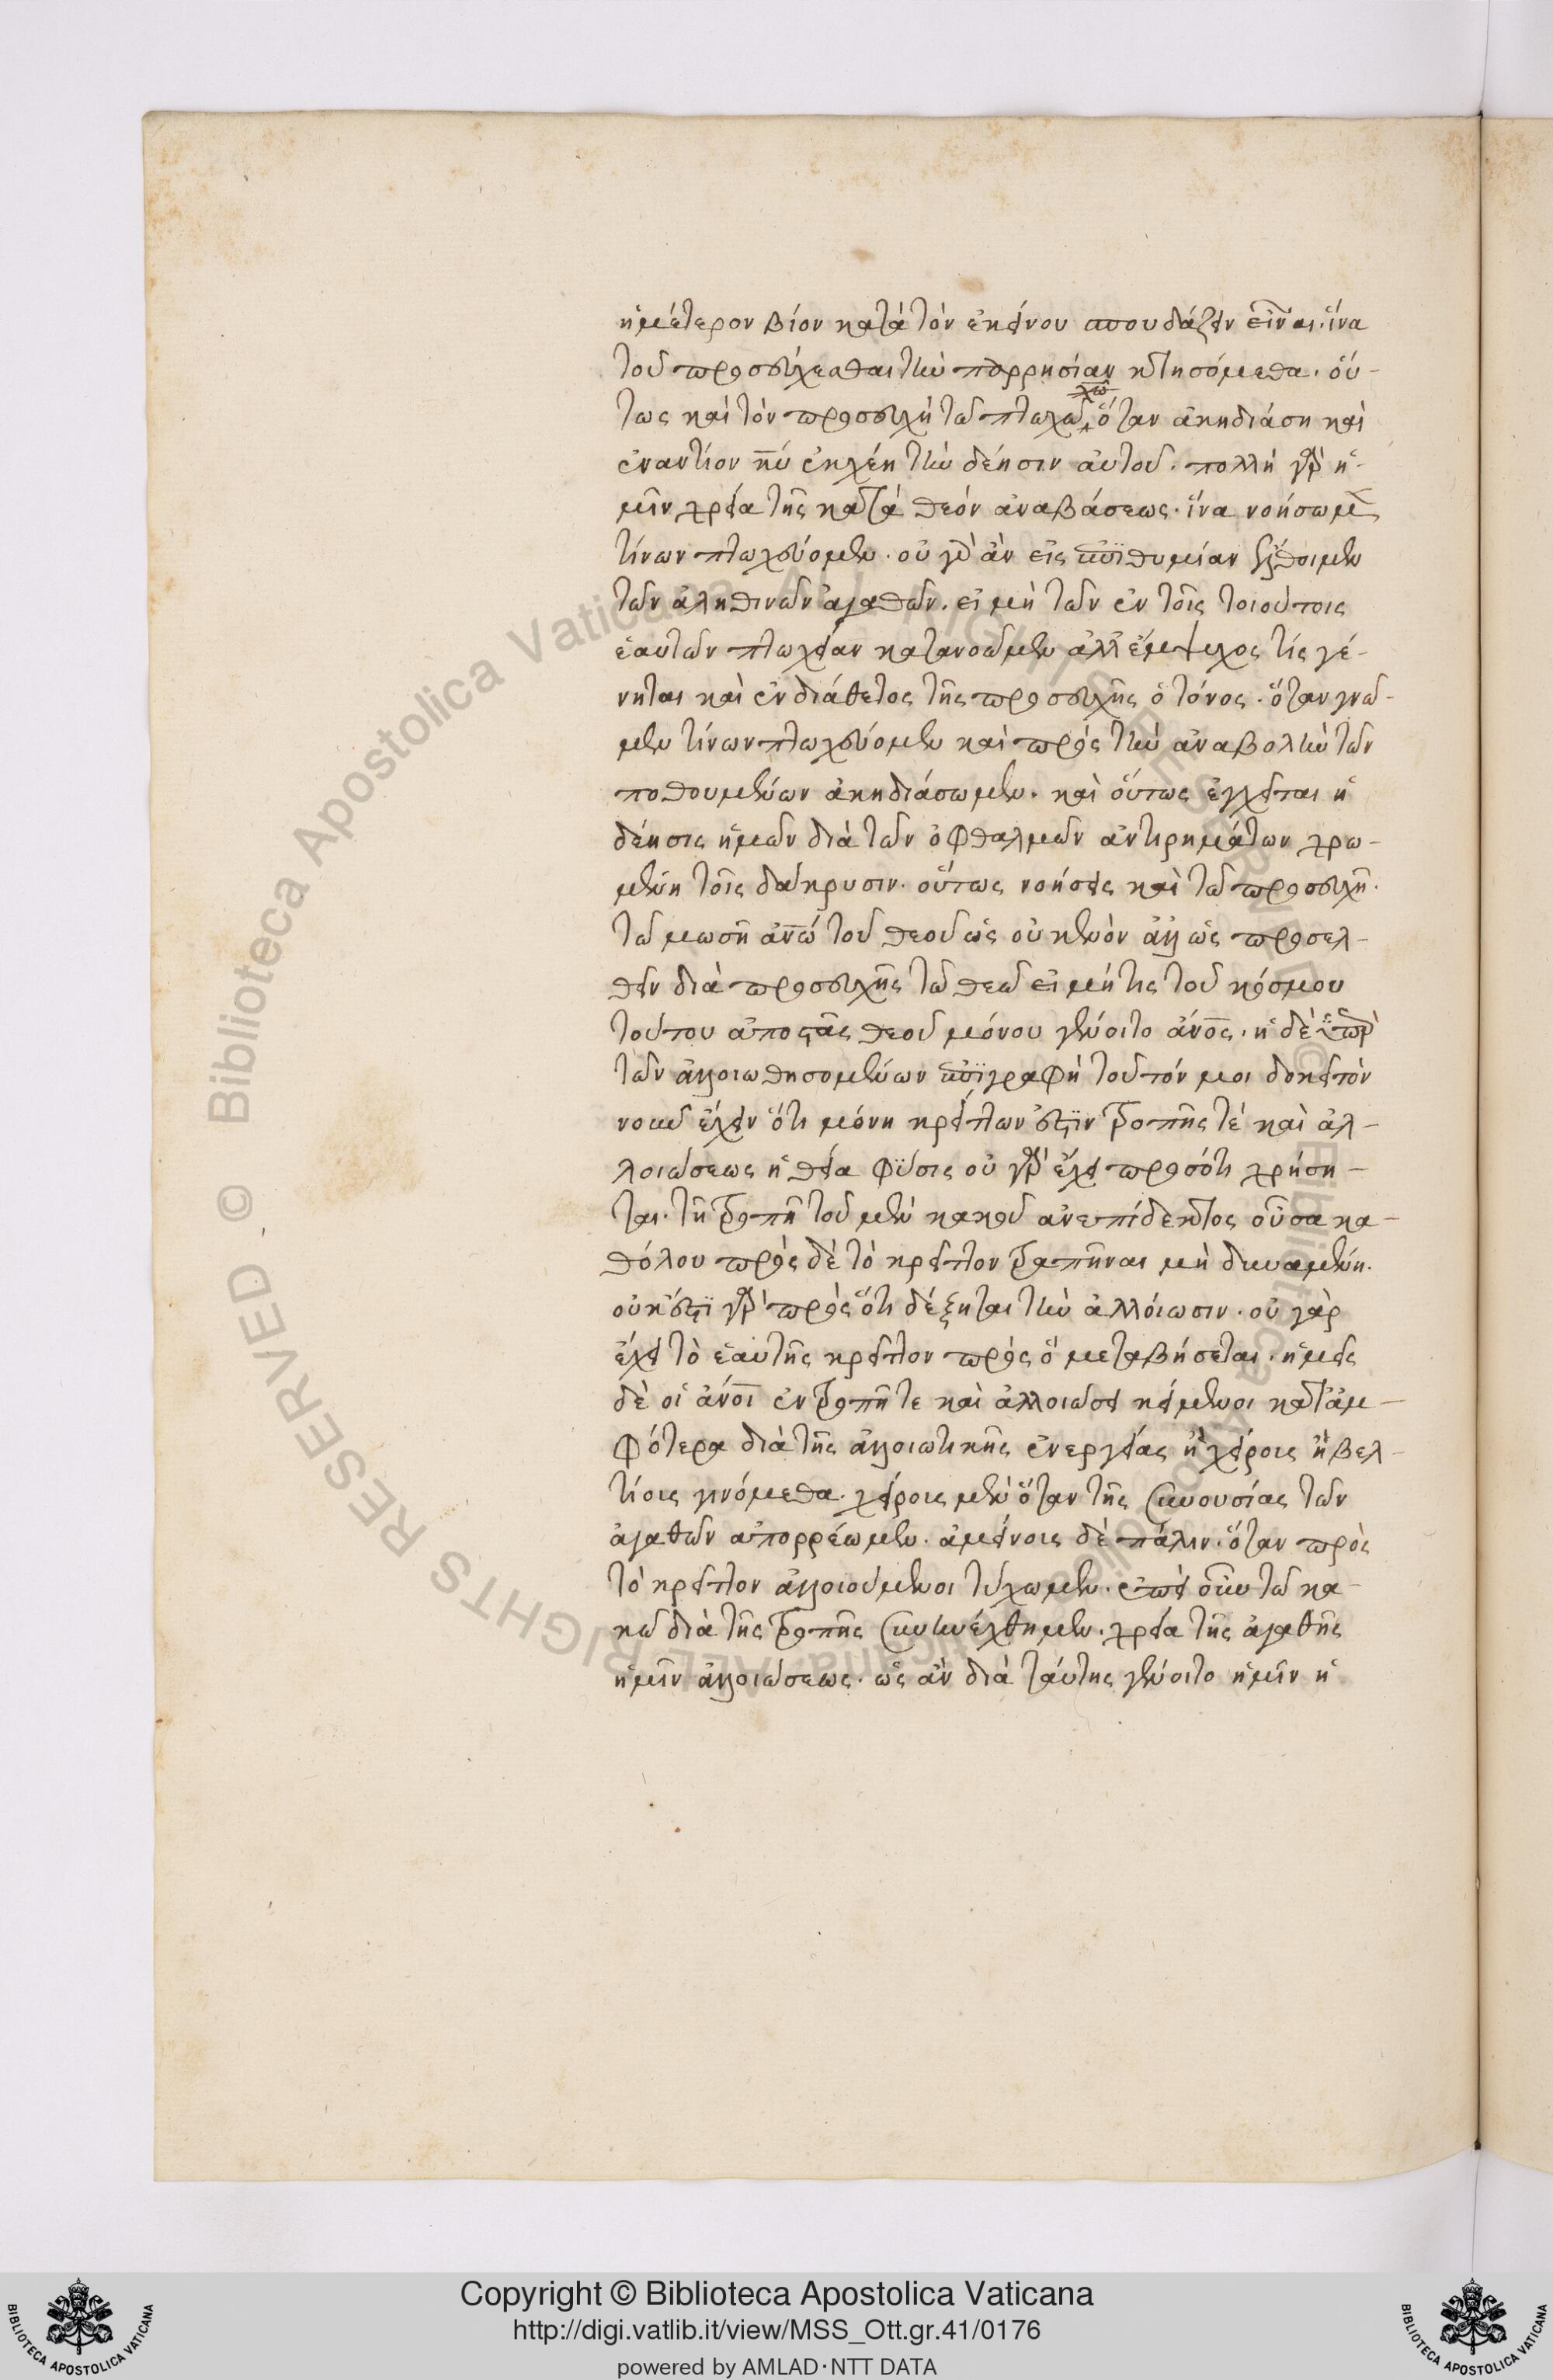 ἡμέτερον βίον κατὰ τὸν ἐκείνου σπουδάζειν εἶναι. ἵνα
τοῦ προσεύχεσθαι τὴν παρρησίαν κτησόμεθα. οὕ-
τως καὶ τὸν προσευχὴ τῶ πτωχῶ ὅταν ἀκηδιάση καὶ
ἐναντίον κυ ἐκχέη τὴν δέησιν αὐτοῦ. πολλὴ γὰρ ἡ-
μῖν χρεία τῆς κατὰ θεὸν ἀναβάσεως. ἵνα νοήσωμεν
τίνων πτωχεύομεν. οὐ γὰρ ἂν εἰς ἐπιθυμίαν ἔλθοιμεν
τῶν ἀληθινῶν ἀγαθῶν. εἰ μὴ τῶν ἐν τοῖς τοιούτοις
ἑαυτῶν πτωχείαν κατανοῶμεν ἀλλ' ἔμψυχος τίς γέ-
νηται καὶ ἐνδιάθετος τῆς προσευχῆς ὁ τόνος. ὅταν γνῶ-
μεν τίνων πτωχεύομεν καὶ πρὸς τὴν ἀναβολὴν τῶν
ποθουμένων ἀκηδιάσωμεν. καὶ οὕτως ἐγχεῖται ἡ
δέησις ἡμῶν διὰ τῶν ὀφθαλμῶν ἀντιρημάτων χρω-
μένη τοῖς δάκρυσιν. οὕτως νοήσεις καὶ τῶ προσευχῆ.
τῶ μωσῆ ἀνω τοῦ θεοῦ ὡς οὐκ ἐνὸν ἄλλως προσελ-
θεῖν διὰ προσευχῆς τῶ θεῶ εἰ μή τις τοῦ κόσμου
τούτου ἀποστὰς θεοῦ μόνου γένοιτο ἄνος. ἡ δὲ ὑπὲρ
τῶν ἀλλοιωθησομένων ἐπιγραφὴ τοῦτόν μοι δοκεῖ τὸν
νοῦν ἔχειν ὅτι μόνη κρείττων ἐστὶν τροπῆς τὲ καὶ ἀλ-
λοιώσεως ἡ θεία φύσις οὐ γὰρ ἔχει πρὸς ὅτι χρήση-
ται. τῆ τροπῆ τοῦ μὲν κακοῦ ἀνεπίδεκτος οὖσα κα-
θόλου πρὸς δὲ τὸ κρεῖττον τραπῆναι μὴ δυναμένη.
οὐκ ἔστι γὰρ πρὸς ὅτι δέξηται τὴν ἀλλόιωσιν. οὐ γὰρ
ἔχει τὸ ἑαυτῆς κρεῖττον πρὸς ὃ μεταβήσεται. ἡμεῖς
δὲ οἱ ἄνοι ἐν τροπῆ τε καὶ ἀλλοιώσει κείμενοι κατ' ἀμ-
φότερα διὰ τῆς ἀλλοιωτικῆς ἐνεργείας ἢ χείροις ἢ βελ-
τίοις γινόμεθα. χείροις μὲν ὅταν τῆς συνουσίας τῶν
ἀγαθῶν ἀπορρέωμεν. ἀμείνοις δὲ πάλιν. ὅταν πρὸς
τὸ κρεῖττον ἀλλοιούμενοι τύχωμεν. ἐπεὶ οὖν τῶ κα-
κῶ διὰ τῆς τροπῆς συνηνέχθημεν. χρεία τῆς ἀγαθῆς
ἡμῖν ἀλλοιώσεως. ὡς ἂν διὰ ταύτης γένοιτο ἡμῖν ἡ
Copyright © Biblioteca Apostolica Vaticana
http://digi.vatlib.it/view/MSS_Ott.gr.41/0176
powered by AMLAD·NTT DATA